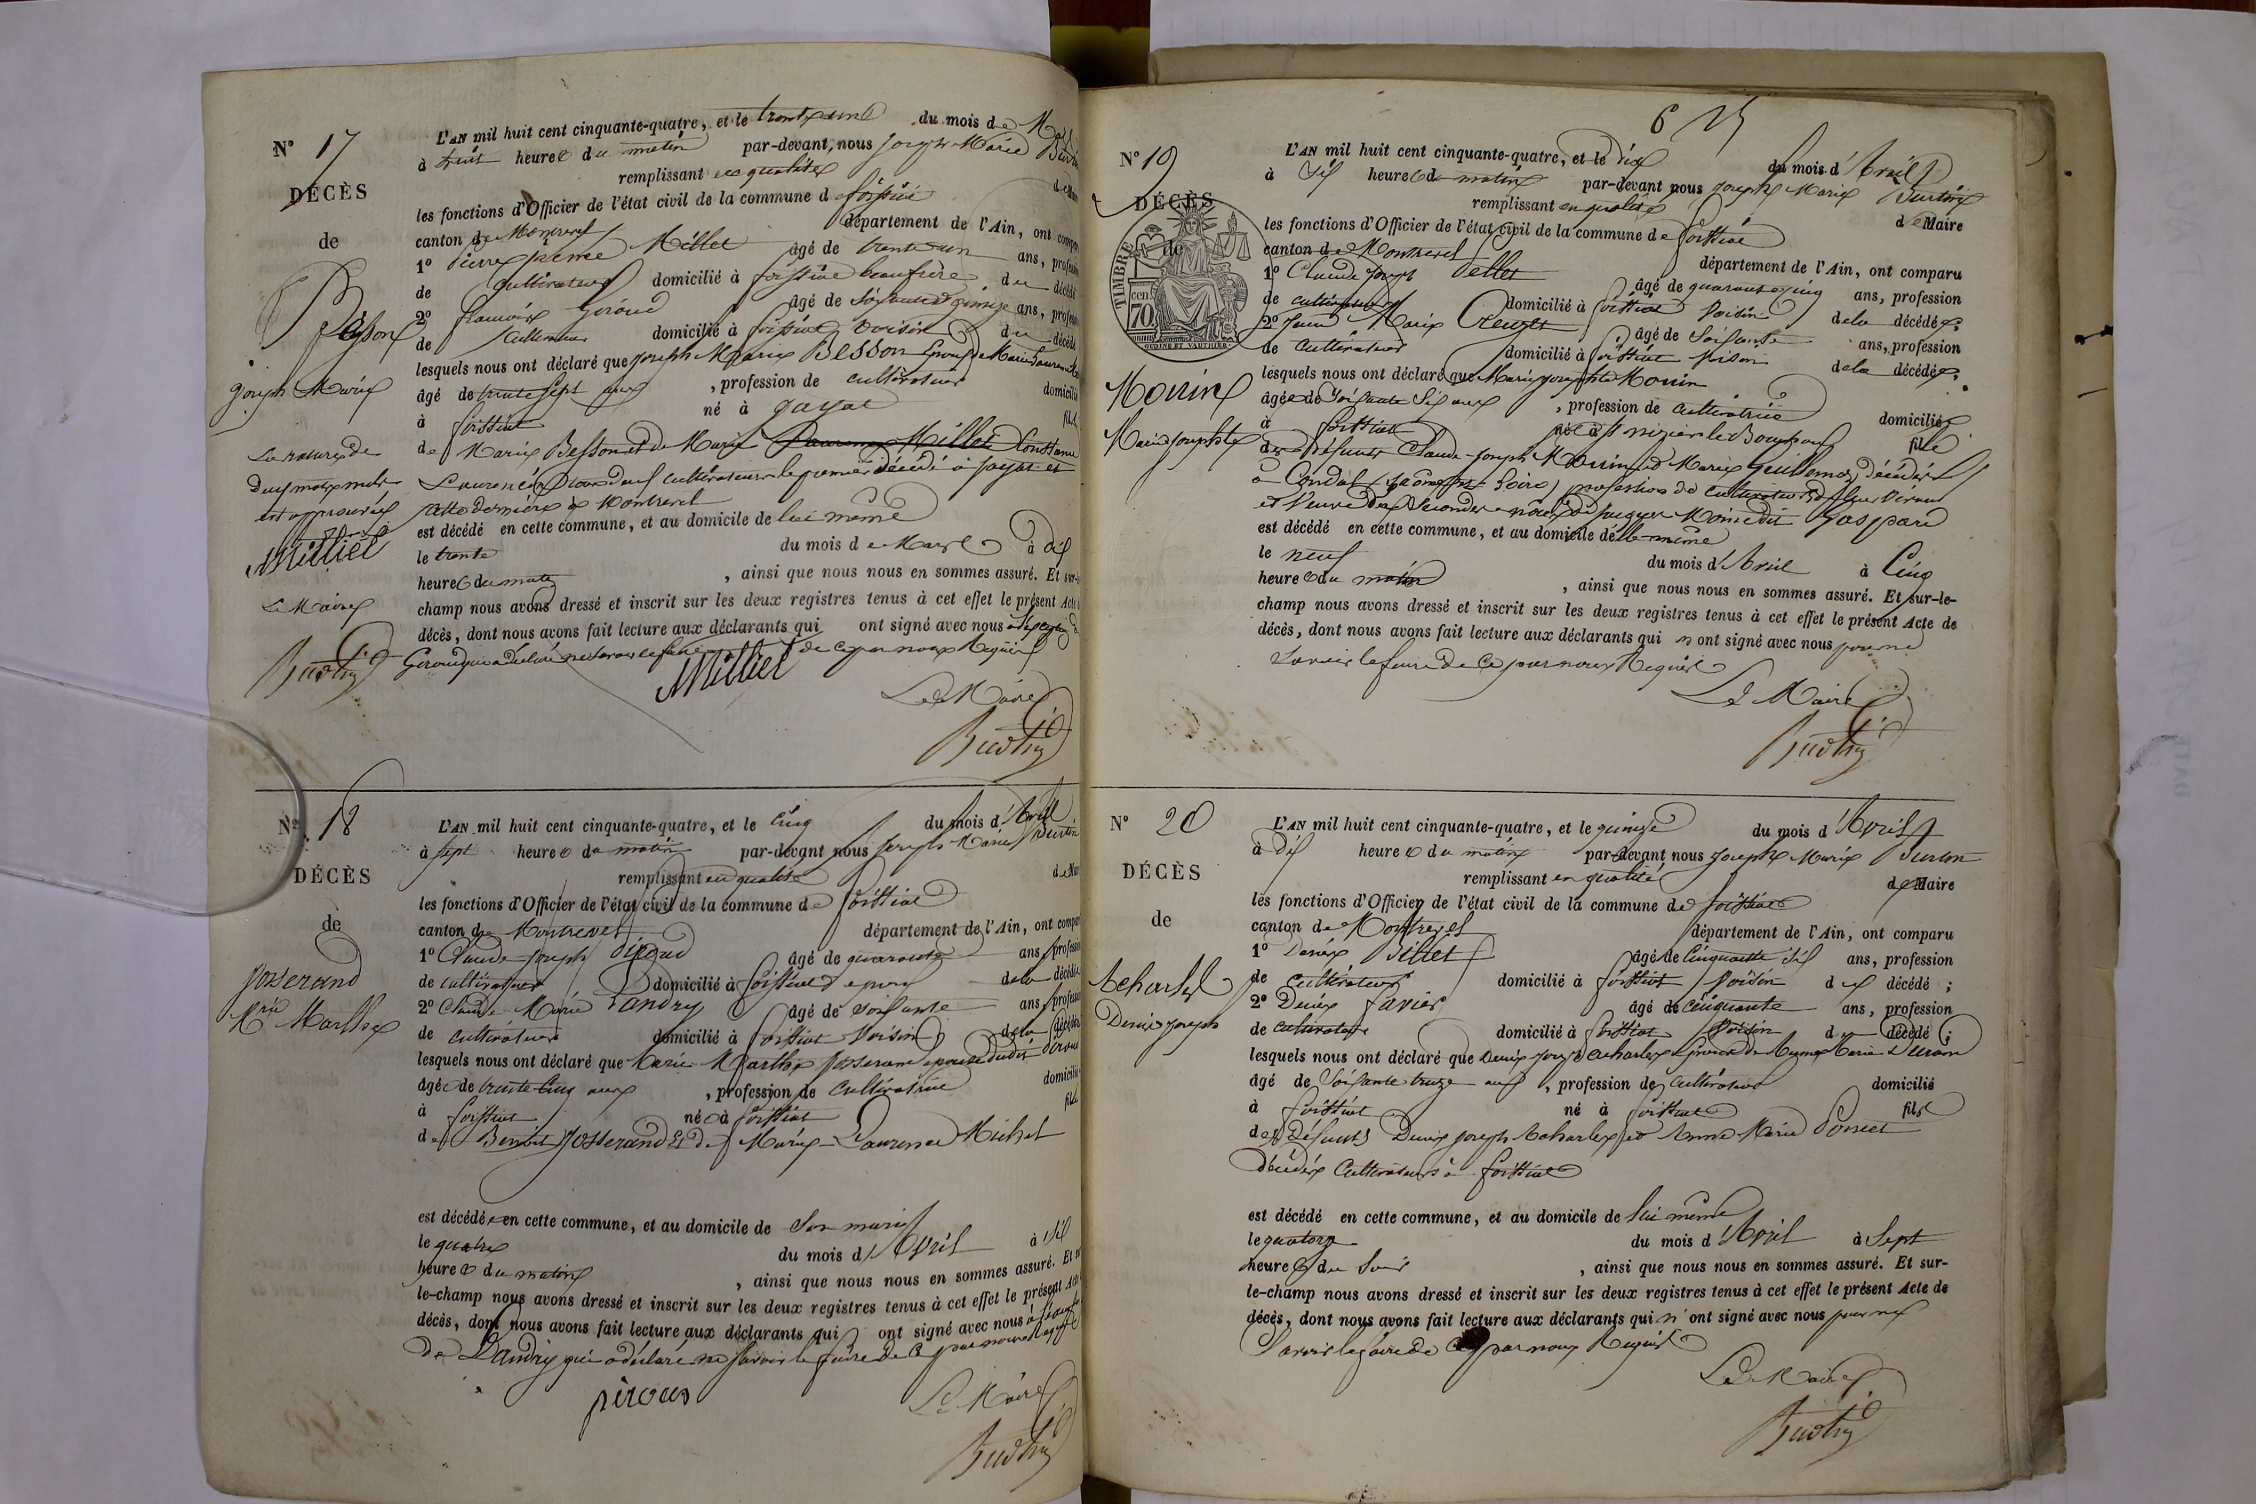 N° 17
DÉCÈS
de
Besson
Joseph Marie
La rature de
deux mots nuls
est approuvée
Milliet
Le Maire
L'AN mil huit cent cinquante-quatre, et le trente un du mois de Mars
à huit heures du matin par-devant nous Joseph Marie
remplissant en qualité
les fonctions d'Officier de l'état civil de la commune de foissiat
canton de Montrevel département de l'Ain, ont
1° Pierre Millet âgé de trente un ans,
de cultivateur domicilié à foissiat beaufrère du décédé
2° françois Giroud âgé de soixante quinze ans,
de cultivateur domicilié à foissiat voisin du décédé
lesquels nous ont déclaré que joseph Marie Besson Epoux de Marie
âgé de trente sept ans, profession de cultivateur domicilié
à foissiat né à jayat fils
de Marie Besson et de Marie Laurence Millet Constance
Laurencin tous deux cultivateurs le premier décédé à jayat et
cette dernière à Montrevel
est décédé en cette commune, et au domicile de lui même
le trente du mois de Mars à dix
heures du matin, ainsi que nous nous en sommes assuré. Et sur-le-
champ nous avons dressé et inscrit sur les deux registres tenus à cet effet le présent Acte
décès, dont nous avons fait lecture aux déclarants qui ont signé avec nous
Giroud qui a déclaré ne savoir le faire de ce par nous Requis
Milliet
Le Maire
N° 18
DÉCÈS
de
Josserand
Mrie Marthe
L'AN mil huit cent cinquante-quatre, et le cinq du mois d'Avril
à sept heures du matin par-devant nous Joseph Marie
remplissant en qualité
les fonctions d'Officier de l'état civil de la commune de foissiat
canton de Montrevel département de l'Ain, ont
1° Claude joseph âgé de quarante ans, profession
de cultivateur domicilié à foissiat epoux de la décédée
2° Claude Marie Landry âgé de soixante ans, profession
de cultivateur domicilié à foissiat voisin de la décédée
lesquels nous ont déclaré que Marie Marthe Josserand epouse dudit
âgée de trente cinq ans, profession de cultivatrice domicilié
à foissiat née à foissiat fille
de Benoit Josserand Et de Marie Laurence Michel
est décédée en cette commune, et au domicile de son mari
le quatre du mois d'Avril à dix
heures du matin, ainsi que nous nous en sommes assuré. Et
le-champ nous avons dressé et inscrit sur les deux registres tenus à cet effet le présent Acte
décès, dont nous avons fait lecture aux déclarants qui ont signé avec nous
de Landry qui a déclaré ne savoir le faire de ce par nous Requis
pirous
Le Maire
6
N° 19
DÉCÈS
de
TIMBRE
cen. 70
OUDINÉ ET VAUTHIER
Morin
Marie josephte
L'AN mil huit cent cinquante-quatre, et le dix du mois d'Avril
à dix heures du matin par-devant nous joseph Marie
remplissant en qualité de Maire
les fonctions d'Officier de l'état civil de la commune de foissiat
canton de Montrevel département de l'Ain, ont comparu
1° Claude joseph Pellet âgé de quarante cinq ans, profession
de cultivateur domicilié à foissiat voisin de la décédée;
2° Marie Creuzet âgé de soixante ans, profession
de cultivateur domicilié à foissiat voisin de la décédée;
lesquels nous ont déclaré que Marie josephte Morin
âgée de soixante six ans, profession de cultivatrice domiciliée
à foissiat née à St nizier le Bouchoux fille
des défunts Claude joseph Morin et Marie Guillemoz décédés
à Condal, profession de cultivateurs
et Veuve de Secondes noces de jacques Moine dit Gaspard
est décédé en cette commune, et au domicile d'elle même
le neuf du mois d'Avril à Cinq
heures du matin, ainsi que nous nous en sommes assuré. Et sur-le-
champ nous avons dressé et inscrit sur les deux registres tenus à cet effet le présent Acte de
décès, dont nous avons fait lecture aux déclarants qui n'ont signé avec nous pour ne
savoir le faire de ce par nous Requis
Le Maire
N° 20
DÉCÈS
de
Acharlex
Denis joseph
L'AN mil huit cent cinquante-quatre, et le quinze du mois d'Avril
à dix heures du matin par-devant nous joseph Marie
remplissant en qualité de Maire
les fonctions d'Officier de l'état civil de la commune de foissiat
canton de Montrevel département de l'Ain, ont comparu
1° Denis Billet âgé de cinquante six ans, profession
de cultivateur domicilié à foissiat voisin du décédé;
2° Denis favier âgé de cinquante ans, profession
de cultivateur domicilié à foissiat voisin du décédé;
lesquels nous ont déclaré que Denis joseph Acharlex Epoux de Marie
âgé de soixante treize ans, profession de cultivateur domicilié
à foissiat né à foissiat fils
des défunts Denis joseph Acharlex et Anne Marie Poncet
décédés cultivateurs à foissiat
est décédé en cette commune, et au domicile de lui même
le quatorze du mois d'Avril à Sept
heures du soir, ainsi que nous nous en sommes assuré. Et sur-
le-champ nous avons dressé et inscrit sur les deux registres tenus à cet effet le présent Acte de
décès, dont nous avons fait lecture aux déclarants qui n'ont signé avec nous pour ne
savoir le faire de ce par nous Requis
Le Maire